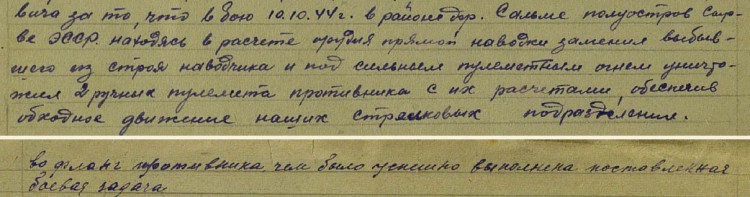 вича за то, что в бою 10.10.44г. в районе дер. Сальме полуостров Сыр-
ве ЭССР. находясь в расчете орудия прямой наводки заменил выбыв-
шего из строя наводчика и под сильным пулеметным огнем уничто-
жил 2 ручных пулемета противника с их расчетами, обеспечив
обходное движение наших стрелковых подразделение.
во фланг противника, чем было успешно выполнена поставленная
боевая задача